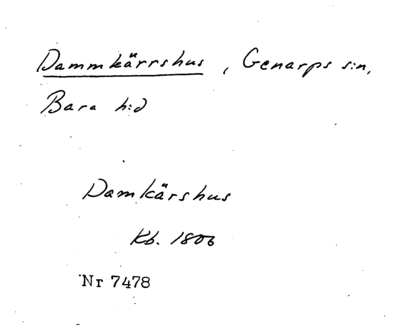 Dammkärrshus, Genarps s:n,
Bara h:d
Damkärshus
Kb. 1806
Nr 7478